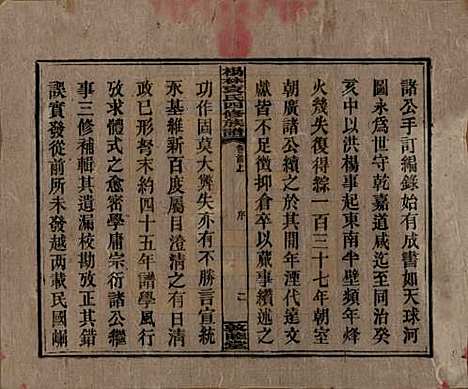 諸公手訂編錄始有成書如天球河
圖永為世守乾嘉道咸迄至同治癸
亥中以洪楊事起東南半壁頻年烽
火幾失復得綜一百三十七年朝室
朝廣諸公續之於其間年湮代遠文
獻皆有足徵抑倉卒以蕆事續述之
楊林袁氏四修族譜
卷之首上
序
二
功作固莫大弊失亦有不勝言宣統
丞基維新百度屬目澄清之有日清
政已形弩末約四十五年譜學風行
攷求體式之愈密學庸宗衍諸公繼
事三修補輯其遺漏校勘攷正其錯
誤實發從前所未發越兩載民國嶄